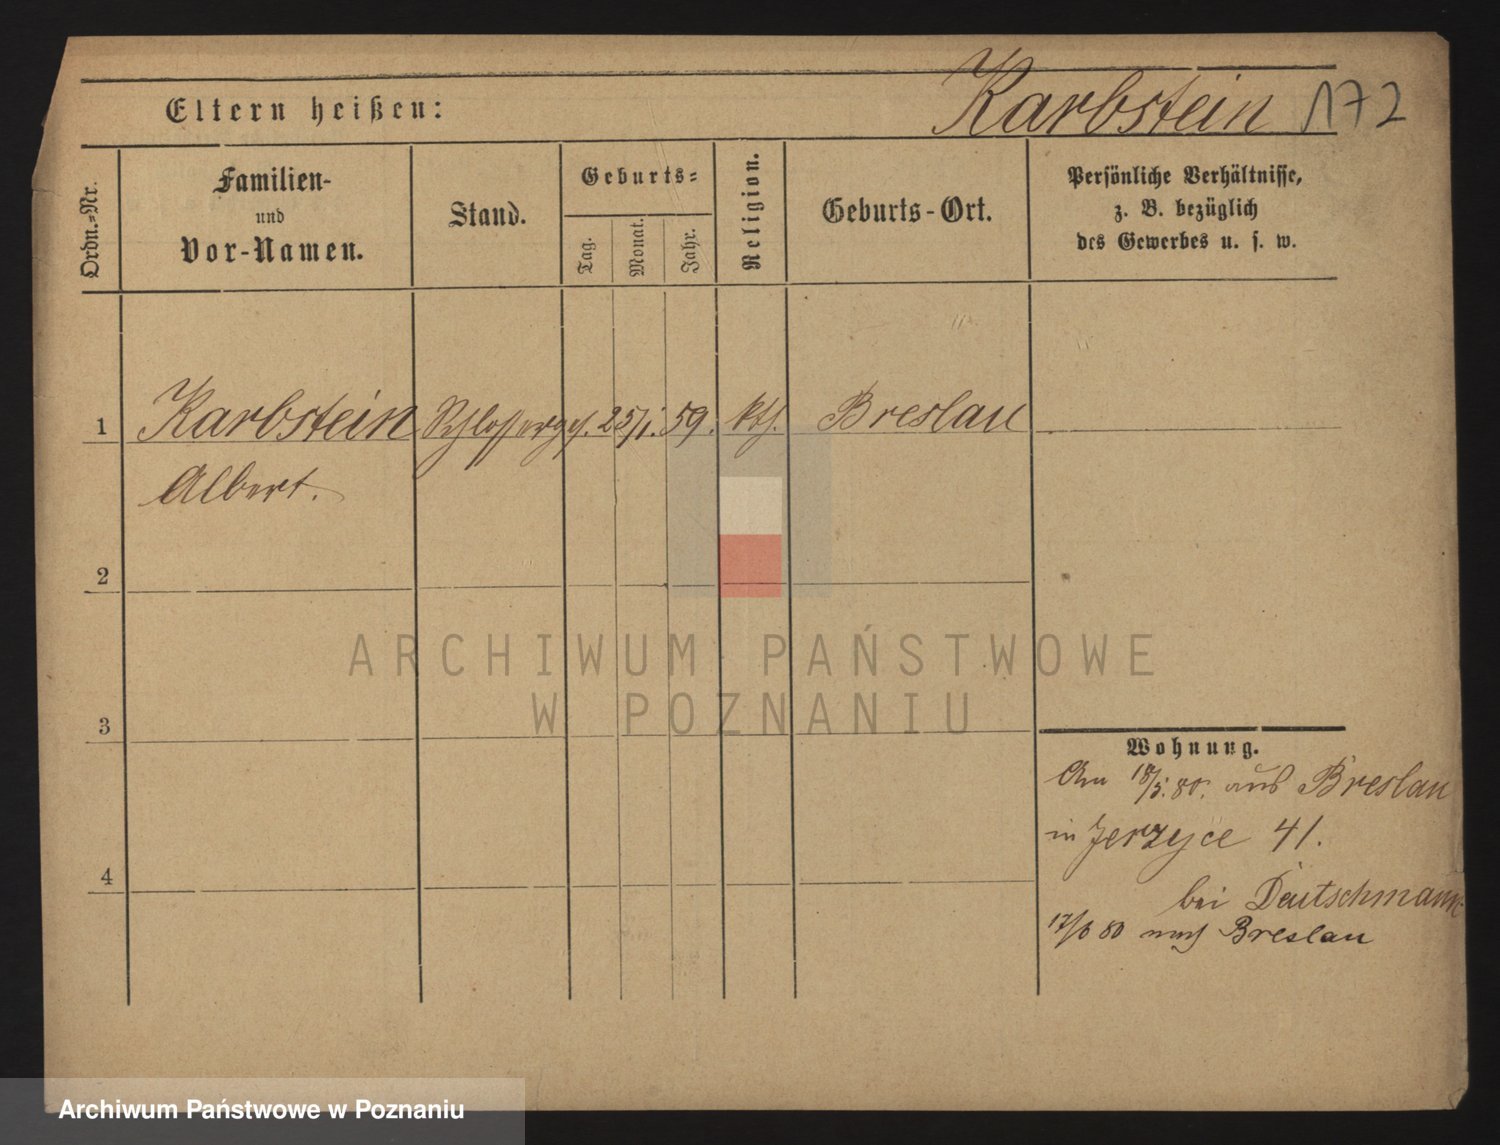 Karbstein 172
Eltern heißen:
Ordn.=Nr.
Familien-
und
Vor-Namen.
Stand.
Geburts=
Tag.
Monat.
Jahr.
Religion.
Geburts-Ort.
Persönliche Verhältnisse,
z. B. bezüglich
des Gewerbes u. s. w.
1 Karbstein Schlosserges. 25/1. 59. kth. Breslau
Albert.
2
3
4
Wohnung.
Am 18/5. 80. aus Breslau
in Jerzyce 41.
bei Deutschmann
17/6 80 nach Breslau
ARCHIWUM PAŃSTWOWE
W POZNANIU
Archiwum Państwowe w Poznaniu